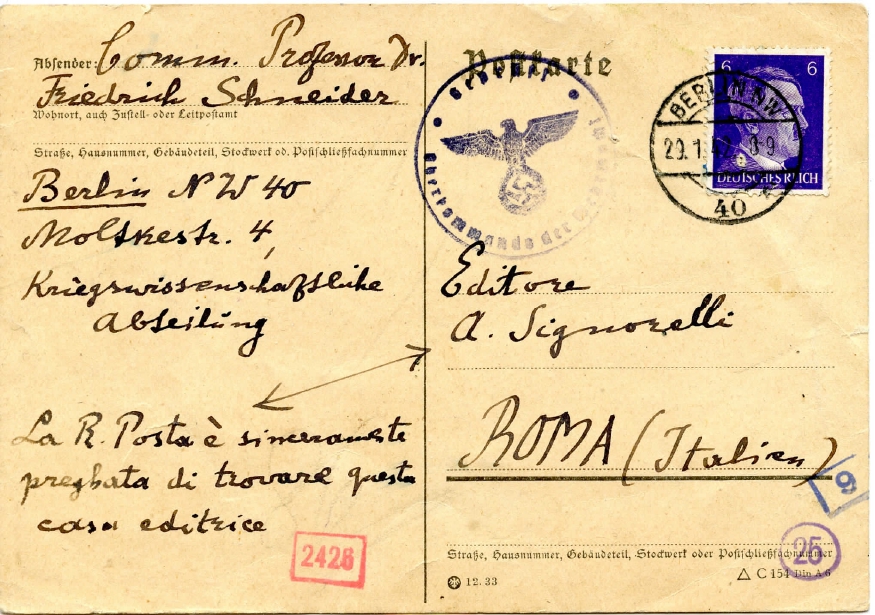 Absender: Comm. Professor Dr.
Friedrich Schneider
Wohnort, auch Zustell- oder Leitpostamt
Straße, Hausnummer, Gebäudeteil, Stockwerk od. Postschließfachnummer
Berlin NW 40
Moltkestr. 4,
Kriegswissenschaftliche
Abteilung
La R. Posta è sinceramente
preghata di trovare questa
casa editrice
2426
Postkarte
Oberkommando der
6 6
DEUTSCHES REICH
BERLIN NW
29.1. 8-9
40
Editore
A. Signorelli
ROMA (Italien)
9
25
Straße, Hausnummer, Gebäudeteil, Stockwerk oder Postschließfachnummer
12.33
C 154 Din A 6